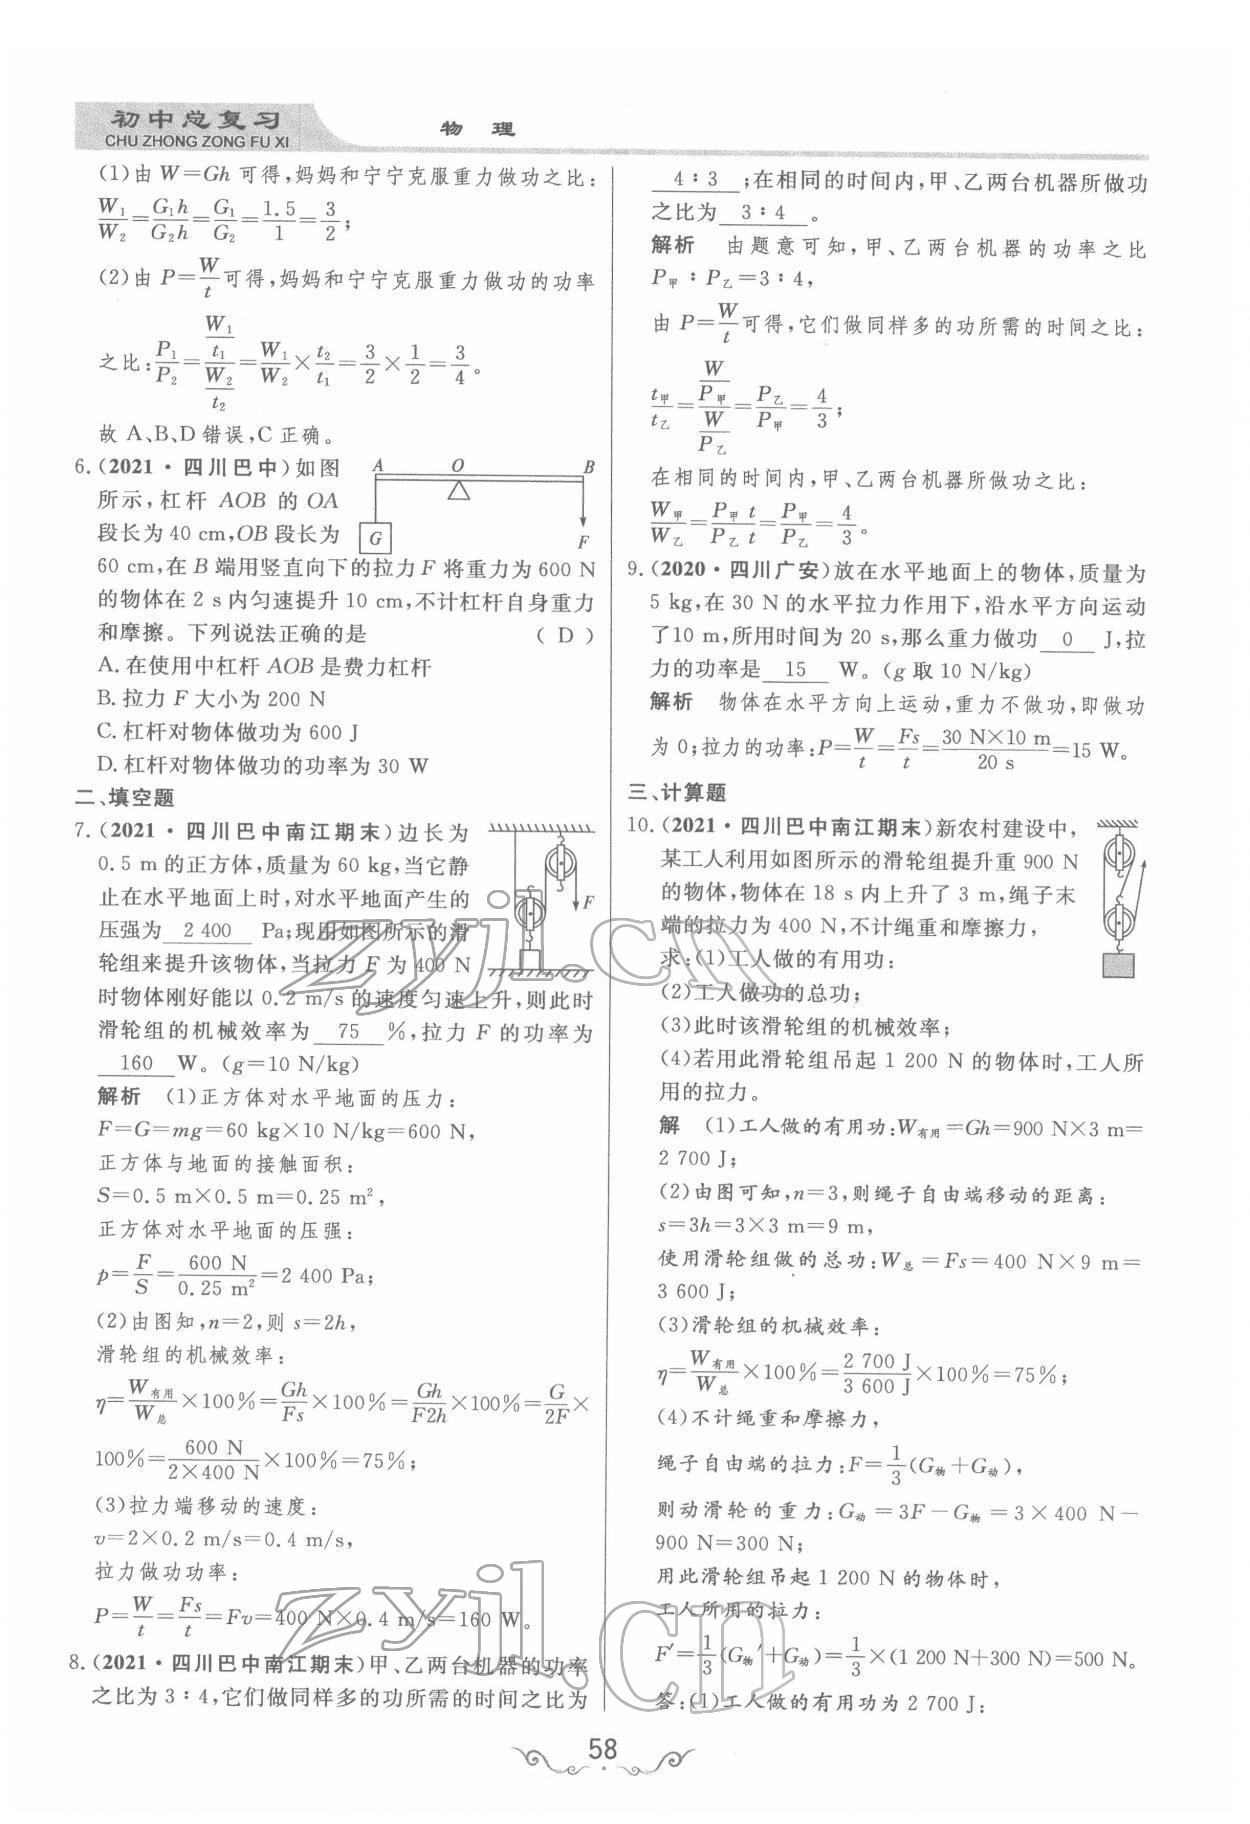 初中总复习
CHU ZHONG ZONG FU XI
物 理
(1)由 W=Gh 可得,妈妈和宁宁克服重力做功之比:
W₁/W₂=G₁h/G₂h=G₁/G₂=1.5/1=3/2;
(2)由 P=W/t可得,妈妈和宁宁克服重力做功的功率
之比:P₁/P₂=(W₁/t₁)/(W₂/t₂)=W₁/W₂×t₂/t₁=3/2×1/2=3/4。
故 A、B、D 错误,C 正确。
6.(2021·四川巴中)如图
所示,杠杆 AOB 的 OA
段长为 40 cm,OB 段长为
60 cm,在 B 端用竖直向下的拉力 F 将重力为 600 N
的物体在 2 s 内匀速提升 10 cm,不计杠杆自身重力
和摩擦。下列说法正确的是 ( D )
A O B
G F
A.在使用中杠杆 AOB 是费力杠杆
B.拉力 F 大小为 200 N
C.杠杆对物体做功为 600 J
D.杠杆对物体做功的功率为 30 W
二、填空题
7.(2021·四川巴中南江期末)边长为
0.5 m 的正方体,质量为 60 kg,当它静
止在水平地面上时,对水平地面产生的
压强为 2 400 Pa;现用如图所示的滑
轮组来提升该物体,当拉力 F 为 400 N
时物体刚好能以 0.2 m/s 的速度匀速上升,则此时
滑轮组的机械效率为 75 %,拉力 F 的功率为
160 W。(g=10 N/kg)
F
解析 (1)正方体对水平地面的压力:
F=G=mg=60 kg×10 N/kg=600 N,
正方体与地面的接触面积:
S=0.5 m×0.5 m=0.25 m²,
正方体对水平地面的压强:
p=F/S=600 N/0.25 m²=2 400 Pa;
(2)由图知,n=2,则 s=2h,
滑轮组的机械效率:
η=W有用/W总×100%=Gh/Fs×100%=Gh/F2h×100%=G/2F×
100%=600 N/2×400 N×100%=75%;
(3)拉力端移动的速度:
v=2×0.2 m/s=0.4 m/s,
拉力做功功率:
P=W/t=Fs/t=Fv=400 N×0.4 m/s=160 W。
8.(2021·四川巴中南江期末)甲、乙两台机器的功率
之比为 3∶4,它们做同样多的功所需的时间之比为
4∶3 ;在相同的时间内,甲、乙两台机器所做功
之比为 3∶4 。
解析 由题意可知,甲、乙两台机器的功率之比
P甲∶P乙=3∶4,
由 P=W/t可得,它们做同样多的功所需的时间之比:
t甲/t乙=(W/P甲)/(W/P乙)=P乙/P甲=4/3;
在相同的时间内,甲、乙两台机器所做功之比:
W甲/W乙=P甲t/P乙t=P甲/P乙=4/3。
9.(2020·四川广安)放在水平地面上的物体,质量为
5 kg,在 30 N 的水平拉力作用下,沿水平方向运动
了10 m,所用时间为 20 s,那么重力做功 0 J,拉
力的功率是 15 W。(g 取 10 N/kg)
解析 物体在水平方向上运动,重力不做功,即做功
为 0;拉力的功率:P=W/t=Fs/t=30 N×10 m/20 s=15 W。
三、计算题
10.(2021·四川巴中南江期末)新农村建设中,
某工人利用如图所示的滑轮组提升重 900 N
的物体,物体在 18 s 内上升了 3 m,绳子末
端的拉力为 400 N,不计绳重和摩擦力,
求:(1)工人做的有用功:
(2)工人做功的总功;
(3)此时该滑轮组的机械效率;
(4)若用此滑轮组吊起 1 200 N 的物体时,工人所
用的拉力。
解 (1)工人做的有用功:W有用=Gh=900 N×3 m=
2 700 J;
(2)由图可知,n=3,则绳子自由端移动的距离:
s=3h=3×3 m=9 m,
使用滑轮组做的总功:W总=Fs=400 N×9 m=
3 600 J;
(3)滑轮组的机械效率:
η=W有用/W总×100%=2 700 J/3 600 J×100%=75%;
(4)不计绳重和摩擦力,
绳子自由端的拉力:F=1/3(G物+G动),
则动滑轮的重力:G动=3F-G物=3×400 N-
900 N=300 N;
用此滑轮组吊起 1 200 N 的物体时,
工人所用的拉力:
F′=1/3(G物′+G动)=1/3×(1 200 N+300 N)=500 N。
答:(1)工人做的有用功为 2 700 J:
58
zyjl.cn
zyjl.cn